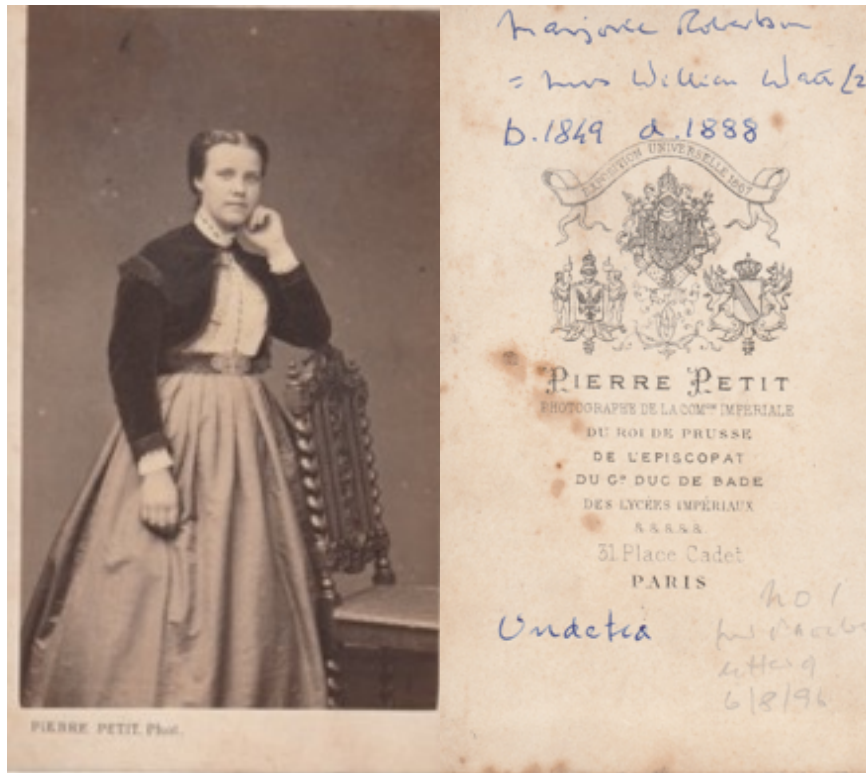 PIERRE PETIT. Phot.
Marjorie Robertson
= Mrs William Watt (2
b. 1849 d. 1888
EXPOSITION UNIVERSELLE 1867
PIERRE PETIT
PHOTOGRAPHE DE LA COMon IMPERIALE
DU ROI DE PRUSSE
DE L'EPISCOPAT
DU Gd DUC DE BADE
DES LYCÉES IMPÉRIAUX
& & & & &
31 Place Cadet
PARIS
Undated
No 1
6/8/96